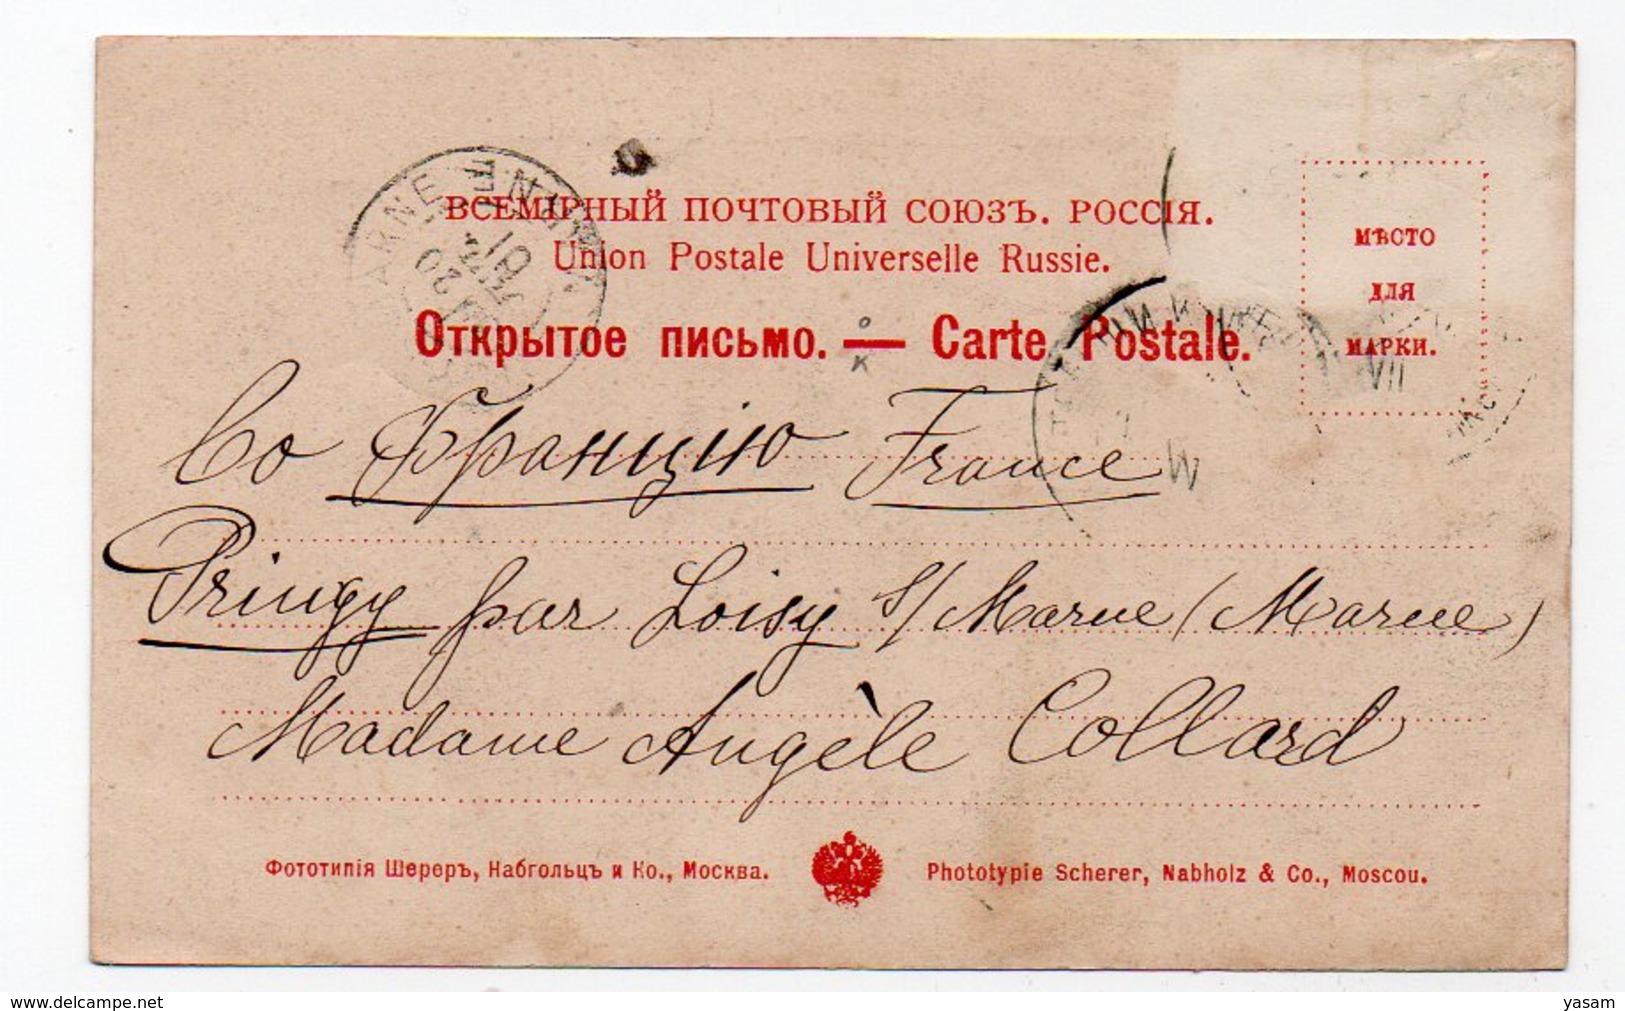 ВСЕМІРНЫЙ ПОЧТОВЫЙ СОЮЗЪ. РОССІЯ.
Union Postale Universelle Russie.
Открытое письмо. — Carte Postale.
МѢСТО
ДЛЯ
МАРКИ.
Во Францію France
Pringy par Loisy s/ Marne (Marne)
Madame Angèle Collard
Фототипія Шереръ, Набгольцъ и Ко., Москва.
Phototypie Scherer, Nabholz & Co., Moscou.
www.delcampe.net
yasam